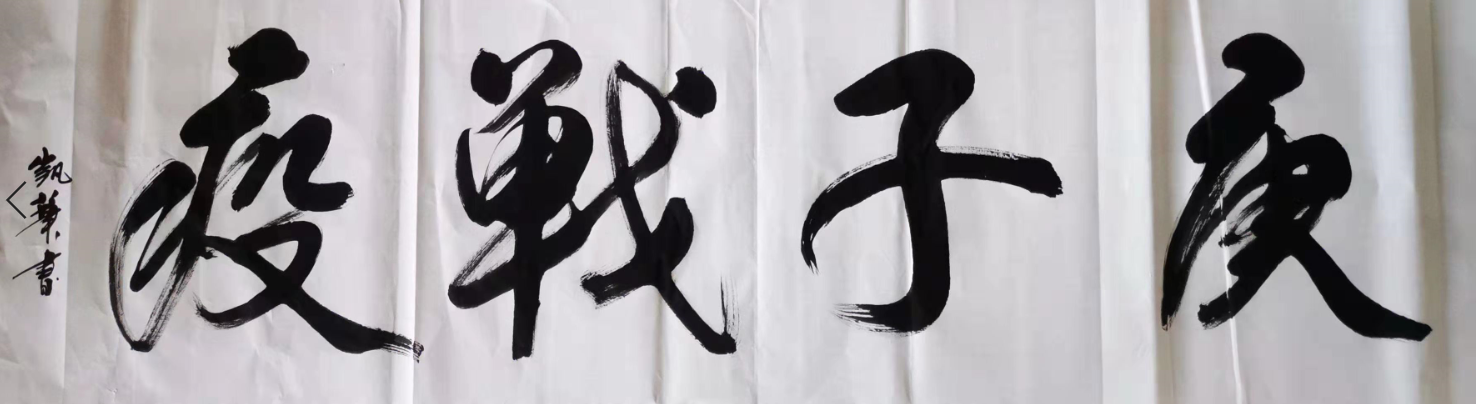 庚子戰疫
凱華書